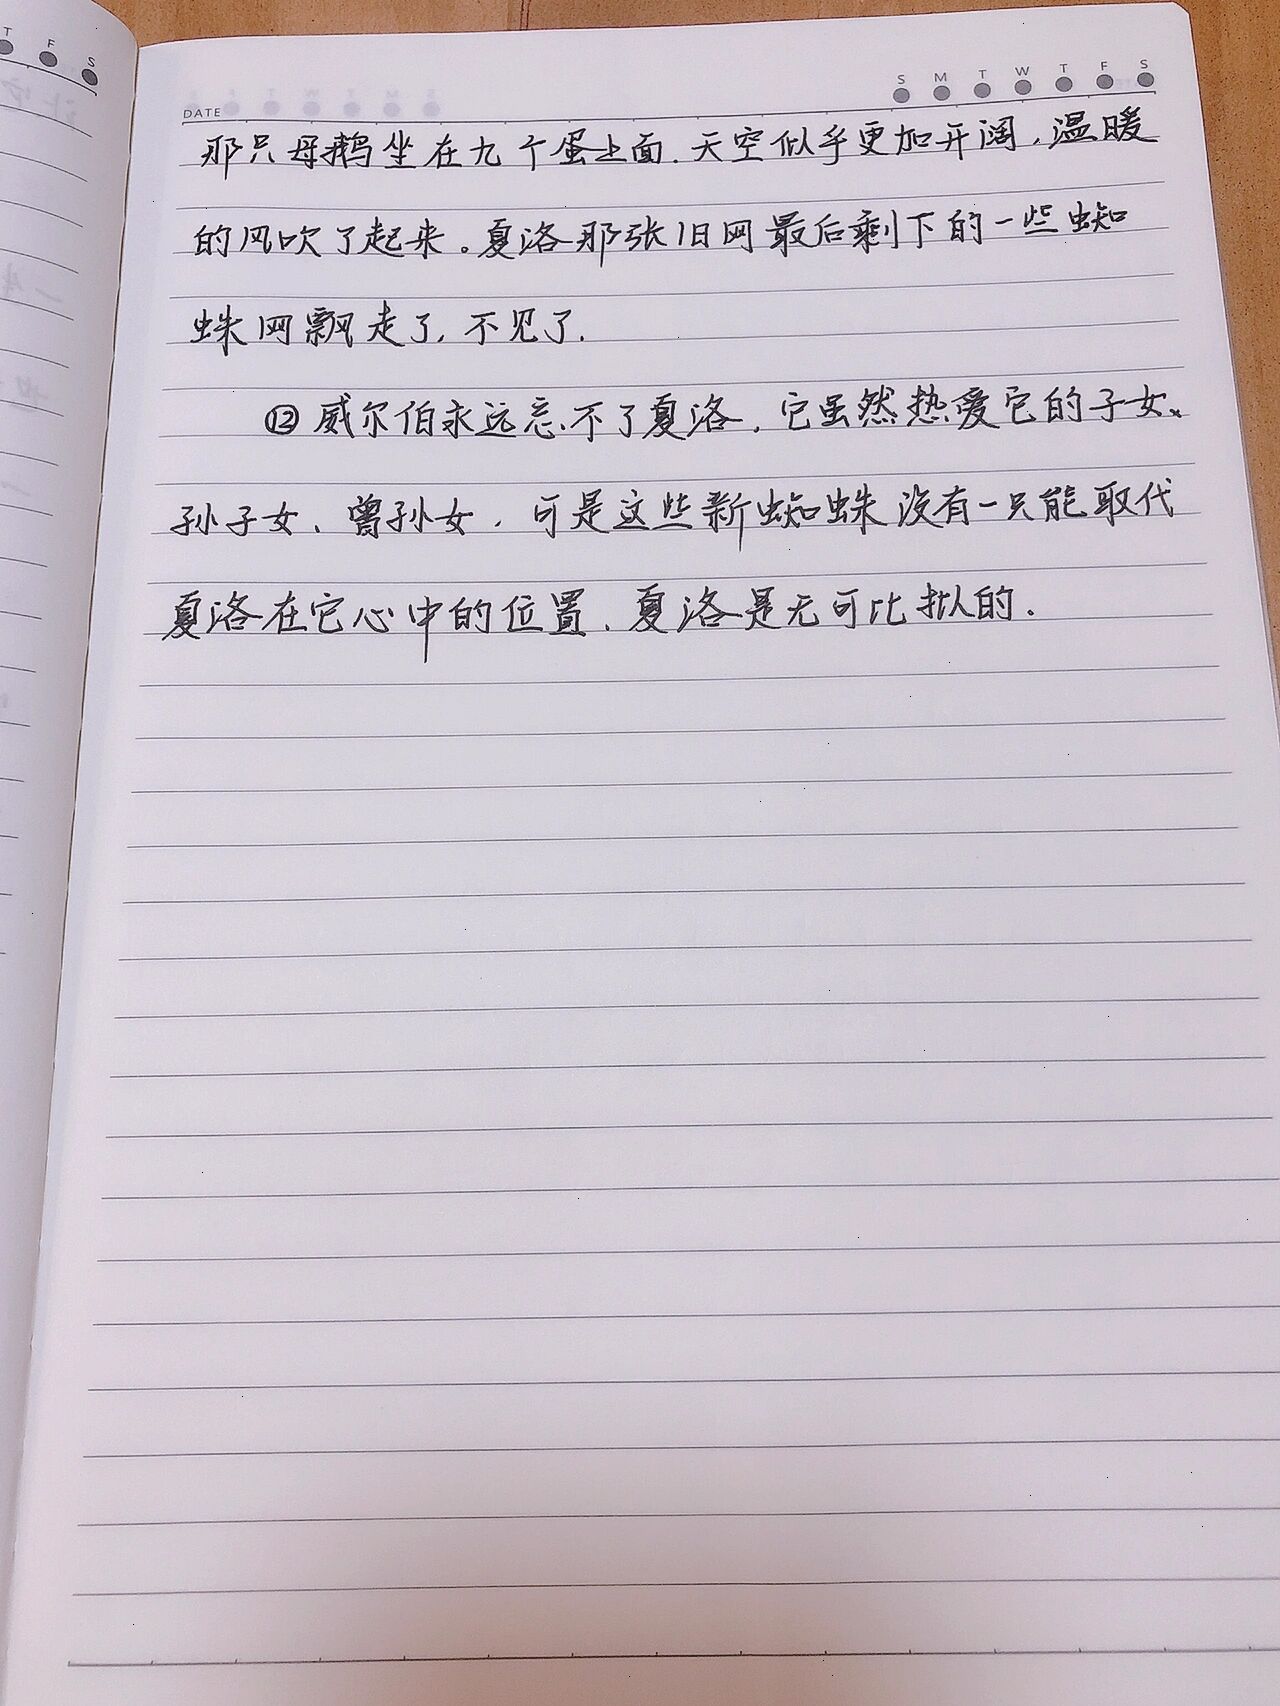 T F S
S M T W T F S
DATE
那只母鹅坐在九个蛋上面.天空似乎更加开阔,温暖
的风吹了起来。夏洛那张旧网最后剩下的一些蜘
蛛网飘走了,不见了.
⑫威尔伯永远忘不了夏洛,它虽然热爱它的子女、
孙子女、曾孙女,可是这些新蜘蛛没有一只能取代
夏洛在它心中的位置.夏洛是无可比拟的.